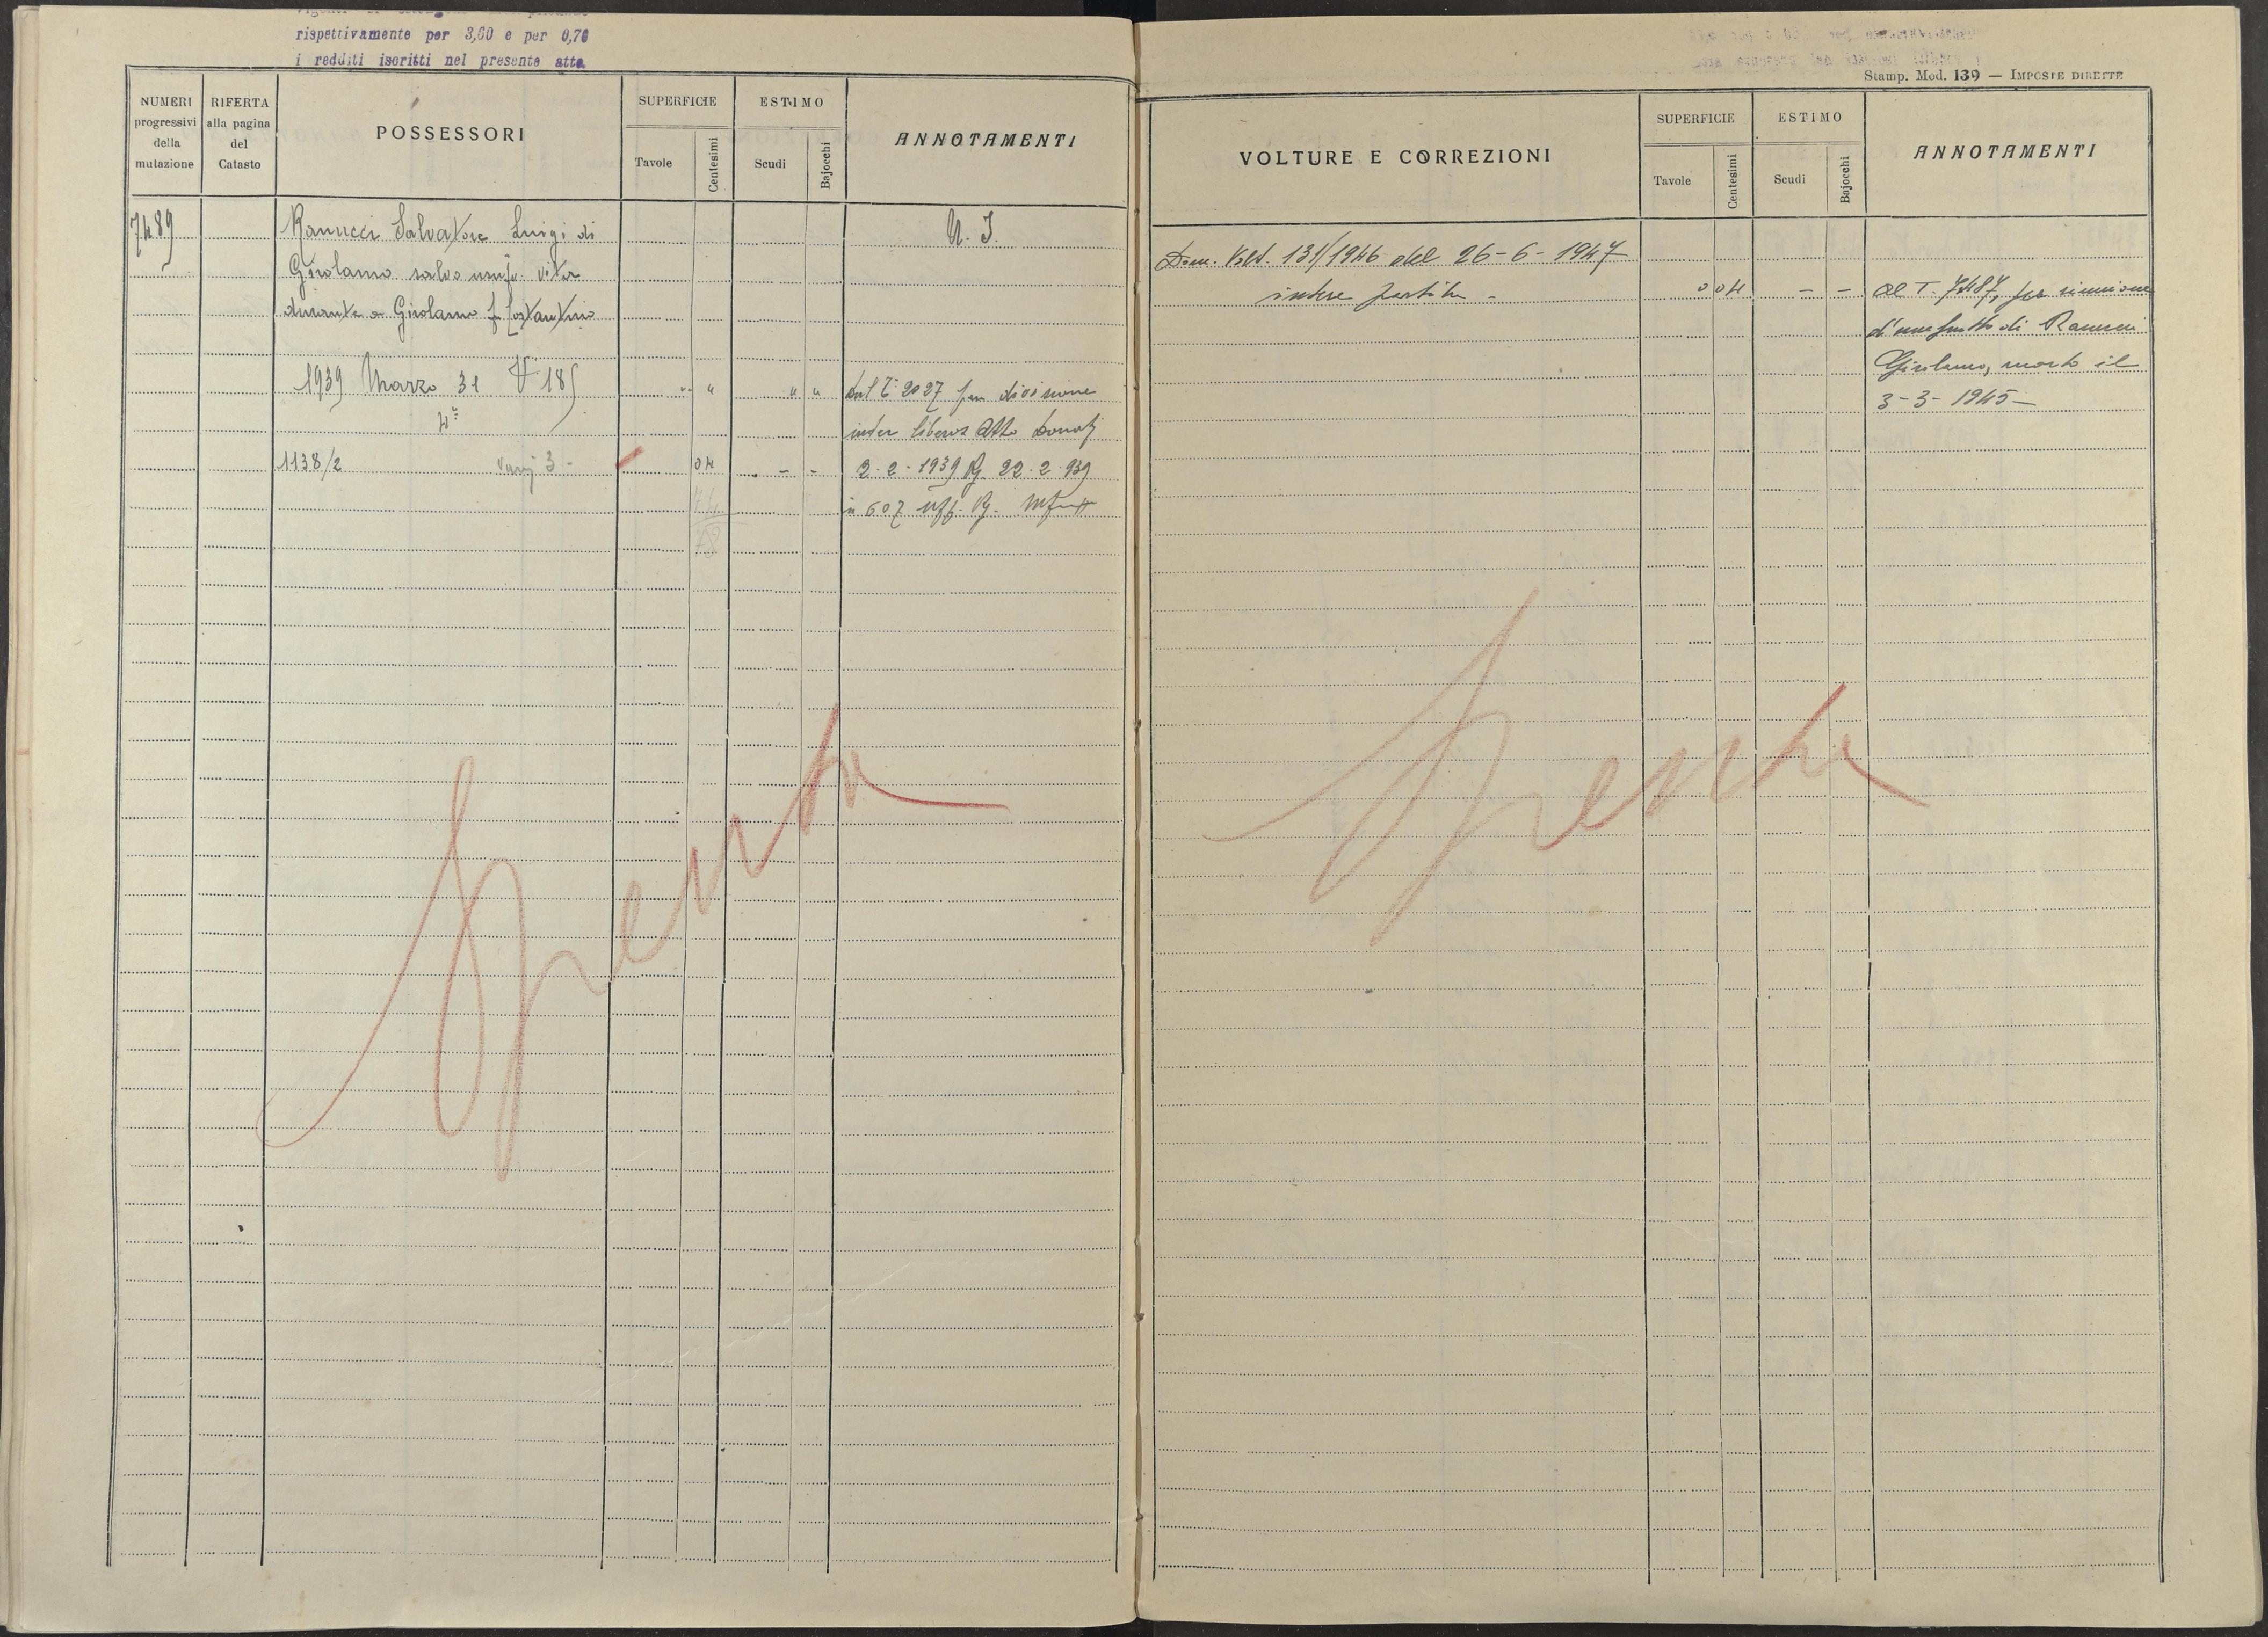 rispettivamente per 3,60 e per 0,70
i redditi iscritti nel presente atto
NUMERI progressivi della mutazione
RIFERTA alla pagina del Catasto
POSSESSORI
SUPERFICIE
Tavole
Centesimi
ESTIMO
Scudi
Bajocchi
ANNOTAMENTI
7489
Ranucci Salvatore Luigi di
Girolamo salvo usuf. vita
durante a Girolamo fu Costantino
U. I.
1939 Marzo 31 V 185
" " " " dal T. 2027 per divisione
inter liberos Atto Donati
1138/2 04 - - 2.2.1939 Rg. 22.2.939
n 607 Uff. Rg.
Spenta
Stamp. Mod. 139 — IMPOSTE DIRETTE
VOLTURE E CORREZIONI
SUPERFICIE
Tavole
Centesimi
ESTIMO
Scudi
Bajocchi
ANNOTAMENTI
Dom. Volt. 131/1946 del 26-6-1947
intera partita - 0 04 - - Al T. 7487, per riunione
d'usufrutto di Ranucci
Girolamo, morto il
3-3-1945 —
Spenta